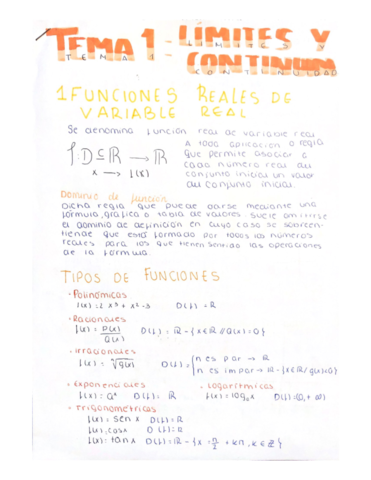 TEMA 1 - LÍMITES Y
TEMA 1 - LIMITES Y
CONTINUIDAD
CONTINUIDAD
1 FUNCIONES REALES DE
VARIABLE REAL
Se denomina función real de variable real
f: D ⊆ ℝ → ℝ
x → f(x)
A toda aplicación o regla
que permite asociar a
cada número real du
conjunto inicial un valor
du conjunto inicial
Dominio de función
Dicha regla que puede darse mediante una
fórmula, gráfica o tabla de valores. Suele omitirse
el dominio de definición en cuyo caso se sobreen-
tiende que está formado por todos los números
reales para los que tienen sentido las operaciones
de la fórmula.
TIPOS DE FUNCIONES
· Polinómicas
D(f) = ℝ
· Racionales
f(x) = P(x)/Q(x) D(f) = ℝ - {x∈ℝ // Q(x)=0}
· Irracionales
f(x) = ⁿ√g(x) D(f) = { n es par → ℝ
n es impar → ℝ - {x∈ℝ/ g(x)<0}
· Exponenciales · Logarítmicas
f(x) = aˣ D(f) = ℝ f(x) = logₐ x D(f) = (0, +∞)
· Trigonométricas
f(x) = sen x D(f) = ℝ
f(x) = cosx D(f) = ℝ
f(x) = tan x D(f) = ℝ - {x = π/2 + kπ, k ∈ ℤ}